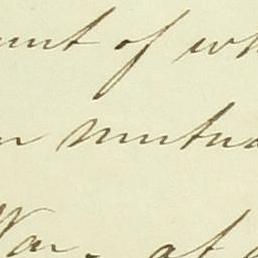 unt of wh
mutua
War. at